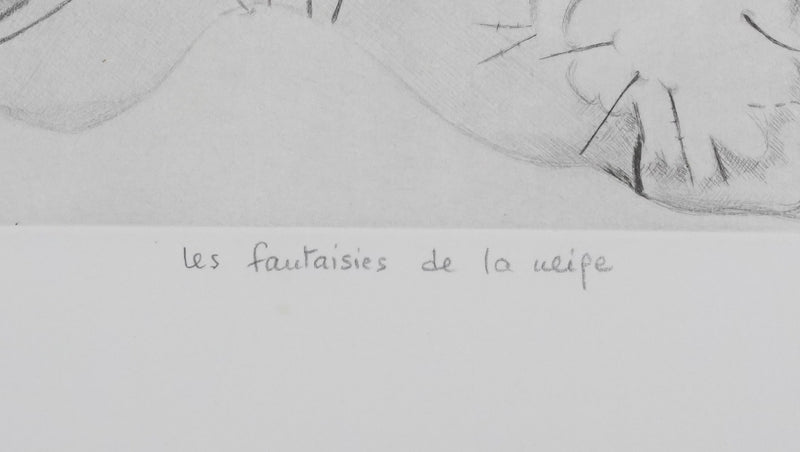 les fantaisies de la neige